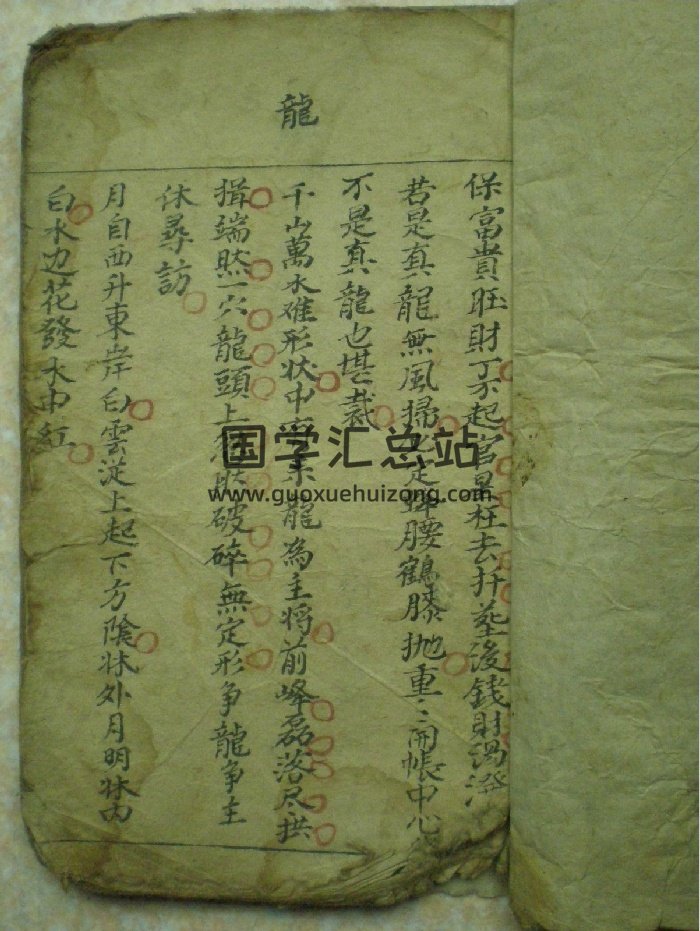 龍
保富貴旺財丁不起官星枉去扦塟後錢財潟潑
若是真龍無風掃蜂腰鶴膝拋重〻開帳中心
不是真龍也堪裁
千山萬水雄形狀中龍為主將前峰磊落尽拱
揖端然一穴龍頭上破碎無定形争龍争主
休尋訪
月自西升東岸白雲從上起下方陰牀外月明牀内
白水边花發水中紅
国学汇总站
www.guoxuehuizong.com